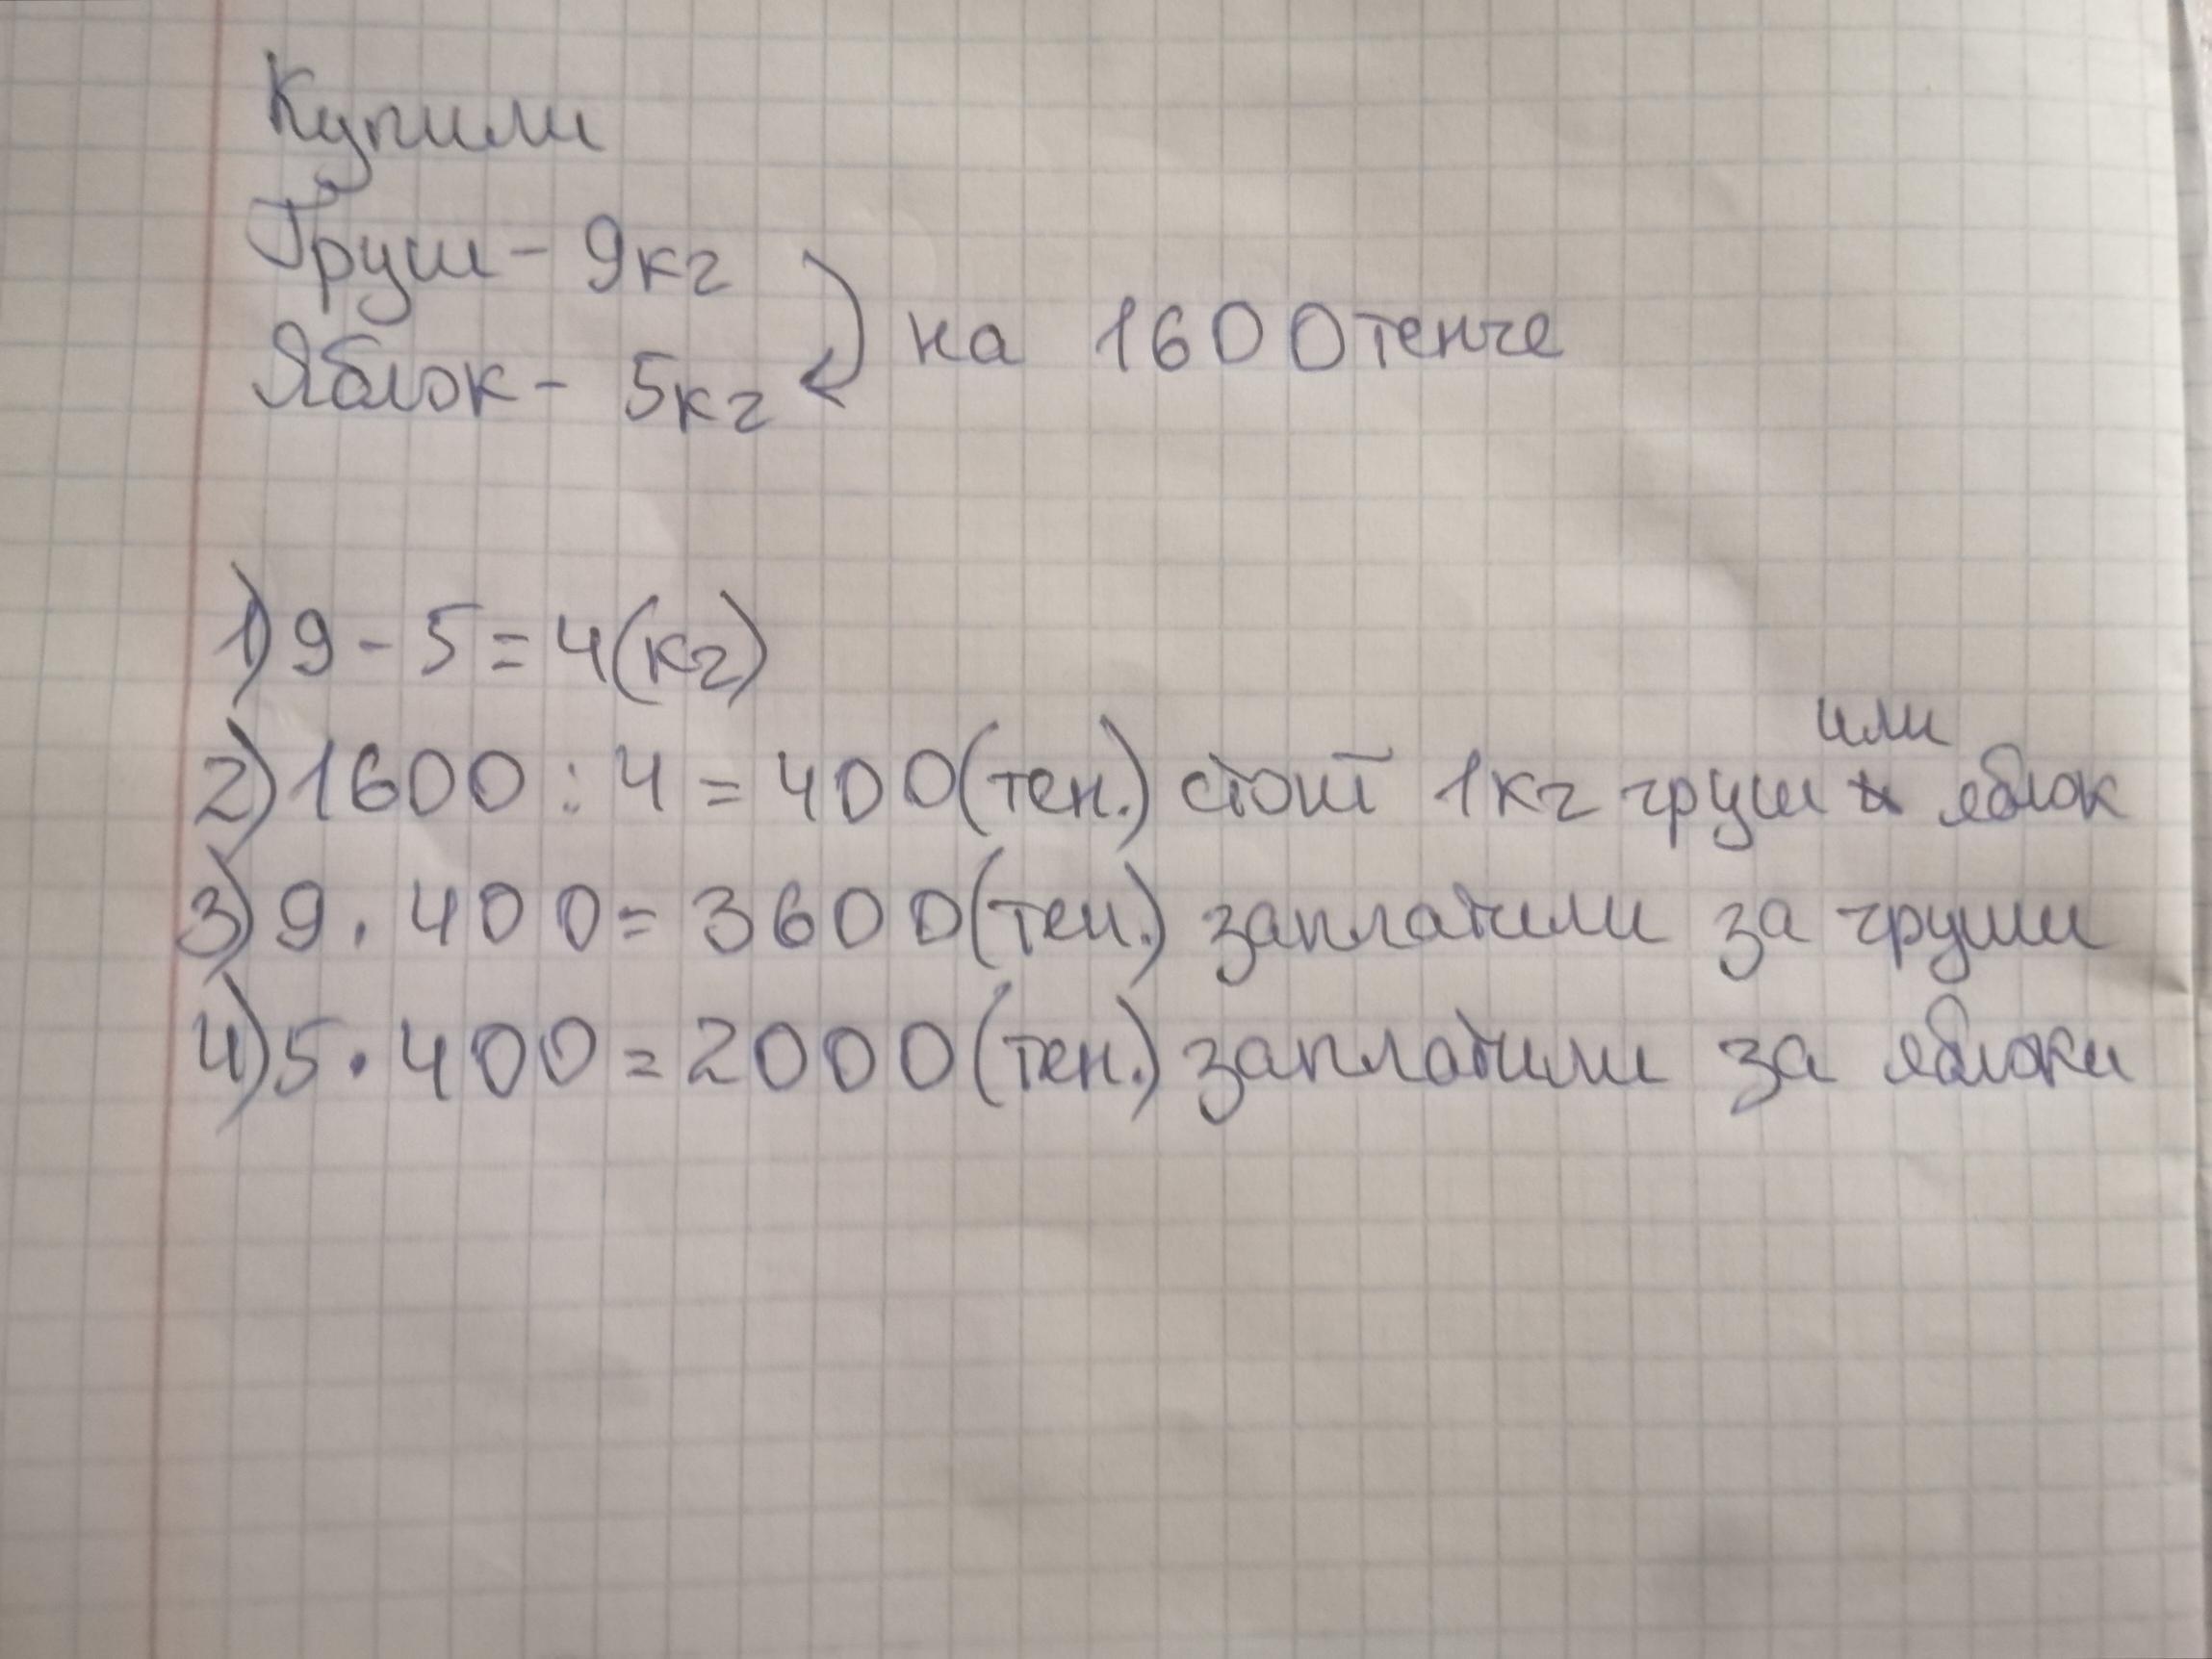 Купили
Груш - 9кг
Яблок - 5кг
на 1600 тенге
1) 9 - 5 = 4 (кг)
2) 1600 : 4 = 400 (тен.) стоит 1кг груш или яблок
3) 9 . 400 = 3600 (тен.) заплатили за груши
4) 5 . 400 = 2000 (тен.) заплатили за яблоки